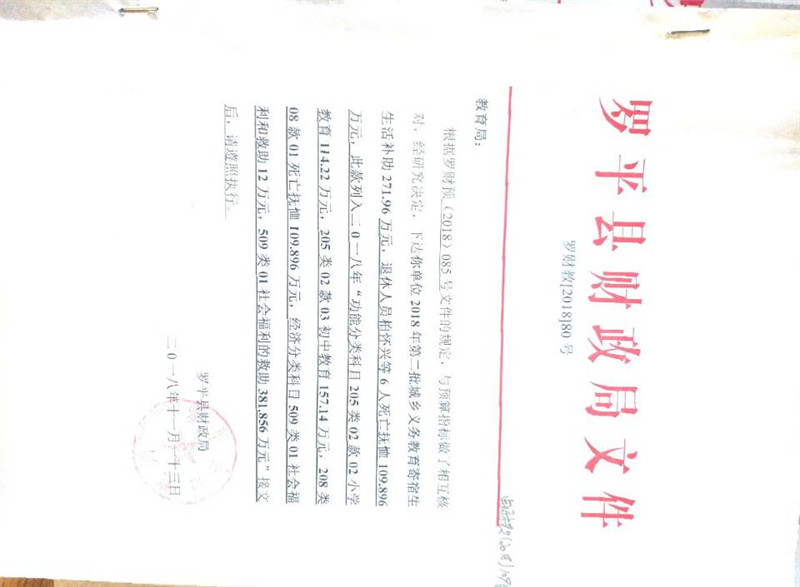 罗平县财政局文件
罗财教[2018]80号
教育局：
根据罗财预（2018）085号文件的规定，与预算指标做了相互核
对，经研究决定，下达你单位2018年第二批城乡义务教育寄宿生
生活补助271.96万元，退休人员柏怀兴等6人死亡抚恤109.896
万元，此款列入二0一八年“功能分类科目205类02款02小学
教育114.22万元，205类02款03初中教育157.14万元，208类
08款01死亡抚恤109.896万元，经济分类科目509类01社会福
利和救助12万元，509类01社会福利的救助381.856万元”接文
后，请遵照执行。
罗平县财政局
二0一八年十一月二十三日